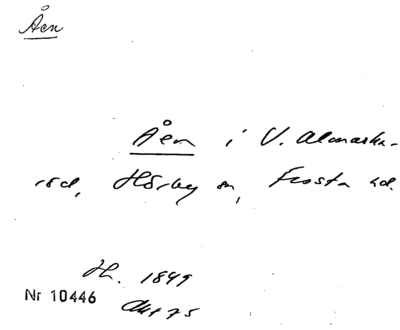 Åen
Åen i V. Almaska-
röd, Hörby sn, Frosta hd.
H. 1849
Nr 10446
Akt 75